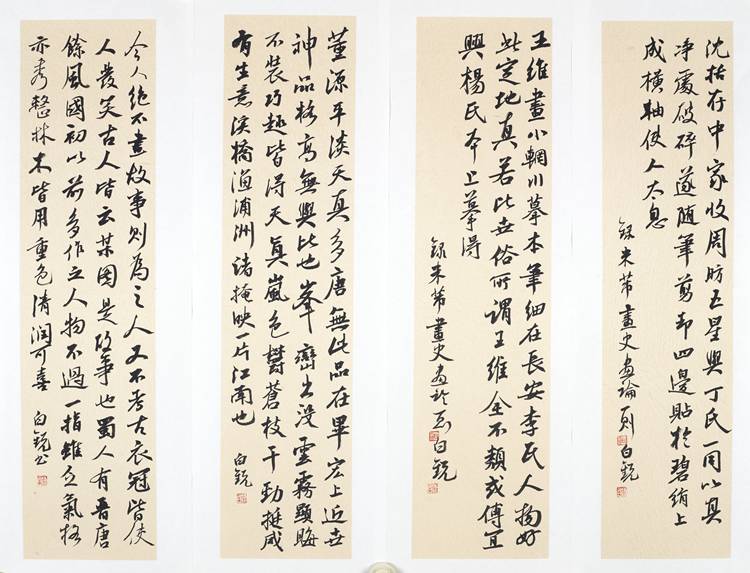 沈括存中家收周昉五星與丁氏一同以其
净處破碎遂隨筆剪却四邊貼於碧絹上
成橫軸使人太息
錄米芾畫史畫論一則白銳
王維畫小輞川摹本筆細在長安李氏人物好
此定地真若比世俗所謂王維全不類或傳宜
興楊氏本上摹得
錄米芾畫史 白銳
董源平淡天真多唐無此品在畢宏上近世
神品格高無與比也峯巒出没雲霧顯晦
不裝巧趣皆得天真嵐色鬱蒼枝干勁挺咸
有生意溪橋漁浦洲渚掩映一片江南也 白銳
今人絕不畫故事則為之人又不考古衣冠皆使
人發笑古人皆云某圖是故事也蜀人有晋唐
餘風國初以前多作之人物不過一指雖乏氣格
亦秀整林木皆用重色清潤可喜 白銳书